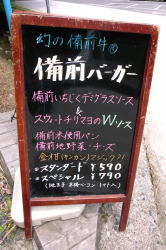 幻の備前牛®
備前バーガー
備前いちじくデミグラスソース
&
スウィートチリマヨのWソース
備前米使用パン
備前地野菜・チーズ
金柑(キンカン)マジック?!
★スタンダード ¥590
★スペシャル ¥790
(地玉子・厚切ベーコン・トマト入)